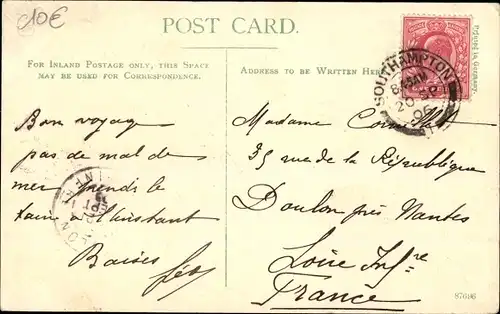 10€
POST CARD.
FOR INLAND POSTAGE ONLY, THIS SPACE
MAY BE USED FOR CORRESPONDENCE.
ADDRESS TO BE WRITTEN HERE
Printed in Germany.
SOUTHAMPTON
8.15AM
20
06
Bon voyage
pas de mal de
mer prends le
à l'instant
Baises
Madame
35 rue de la République
Doulon près Nantes
Loire Infre
France
87606